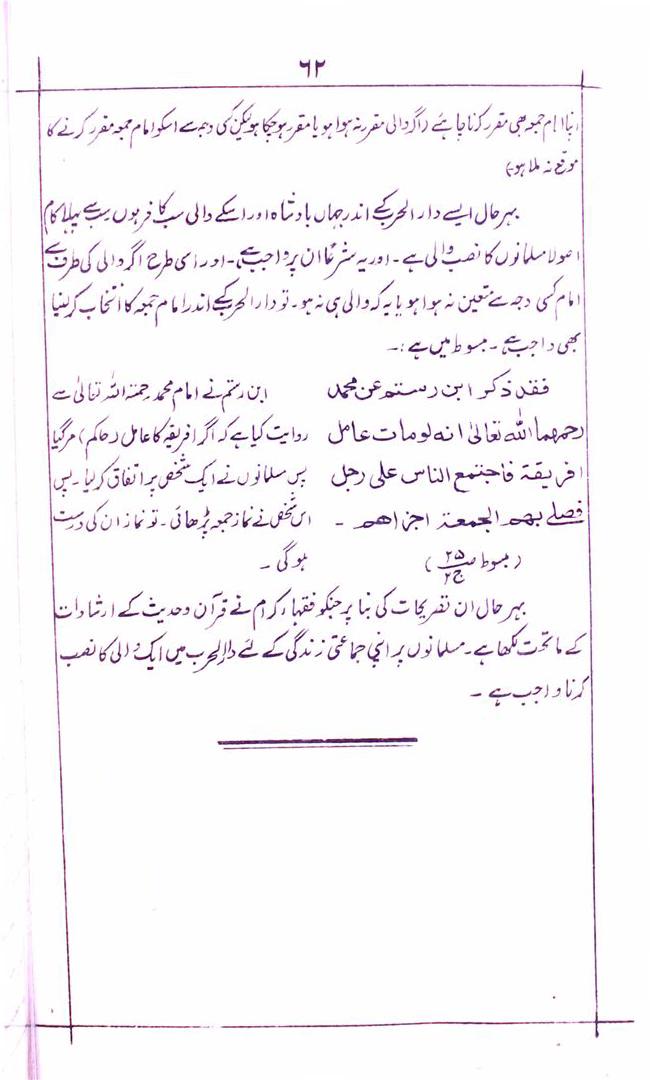 ۶۲
اپنا امام جمعہ بھی مقرر کرنا چاہئے (اگر والی مقرر نہ ہوا ہو یا مقرر ہو چکا ہو لیکن کسی وجہ سے اسکو امام جمعہ مقرر کرنے کا
موقع نہ ملا ہو)
بہر حال ایسے دار الحرب کے اندر جہاں بادشاہ اور اسکے والی سب کافر ہوں سب سے پہلا کام
اصولا مسلمانوں کا نصب والی ہے۔ اور یہ شرعًا ان پر واجب ہے۔ اور اسی طرح اگر والی کی طرف سے
امام کسی وجہ سے متعین نہ ہوا ہو یا یہ کہ والی ہی نہ ہو۔ تو دار الحرب کے اندر امام جمعہ کا انتخاب کر لینا
بھی واجب ہے۔ مبسوط میں ہے:۔
فقد ذکر ابن رستم عن محمد
رحمھما اللہ تعالیٰ انہ لو مات عامل
افریقۃ فاجتمع الناس علی رجل
فصلے بھم الجمعۃ اجزاھم ۔
(مبسوط ص ۲۵ ج ۲)
ابن رستم نے امام محمد رحمتہ اللہ تعالیٰ سے
روایت کیا ہے کہ اگر افریقہ کا عامل (حاکم) مر گیا
پس مسلمانوں نے ایک شخص پر اتفاق کر لیا۔ پس
اس شخص نے نماز جمعہ پڑھائی۔ تو نماز ان کی درست
ہو گی۔
بہر حال ان تصریحات کی بنا پر جنکو فقہاء کرام نے قرآن و حدیث کے ارشادات
کے ماتحت لکھا ہے۔ مسلمانوں پر اپنی جماعتی زندگی کے لئے دار الحرب میں ایک والی کا نصب
کرنا واجب ہے ۔